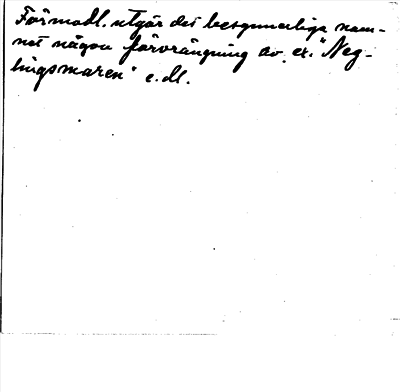 Förmodl. utgår det besynnerliga nam-
net någon förvrängning av ex. "Neg-
lingsmaren" e.dl.